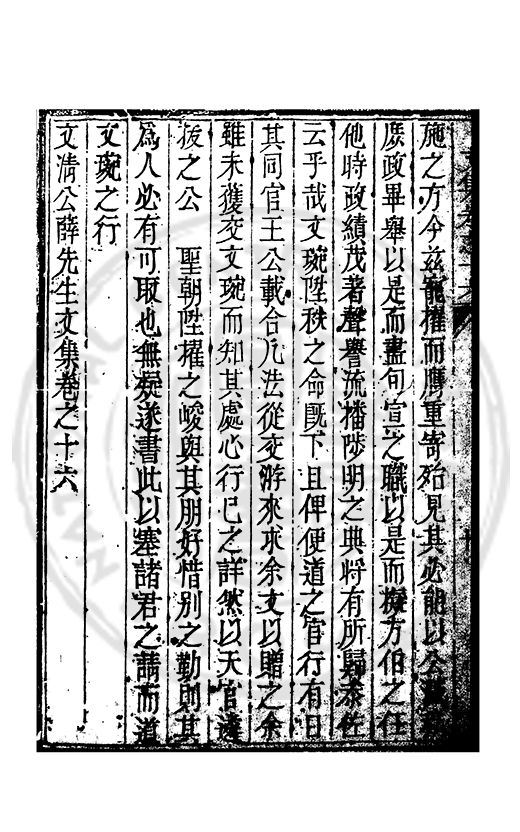 施之方今兹寵擢而膺重寄殆見其必能以公
庶政畢舉以是而盡旬宣之職以是而擬方伯之任
他時政績茂著聲譽流播陟明之典將有所歸叅佐
云乎哉文琬陞秩之命旣下且俾便道之官行有日
其同官王公載合凡法從交游來求余文以贈之余
雖未獲交文琬而知其處心行已之詳然以天官遴
拔之公　聖朝陞擢之峻與其朋好惜别之勤則其
爲人必有可取也無疑遂書此以塞諸君之請而道
文琬之行
文清公薛先生文集卷之十六